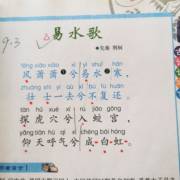 9.3
易水歌
先秦 荆轲
fēng xiāo xiāo xī yì shuǐ hán
风萧萧兮易水寒，
zhuàng shì yí qù xī bú fù huán
壮士一去兮不复还。
tàn hǔ xué xī rù jiāo gōng
探虎穴兮入蛟宫，
yǎng tiān hū qì xī chéng bái hóng
仰天呼气兮成白虹。